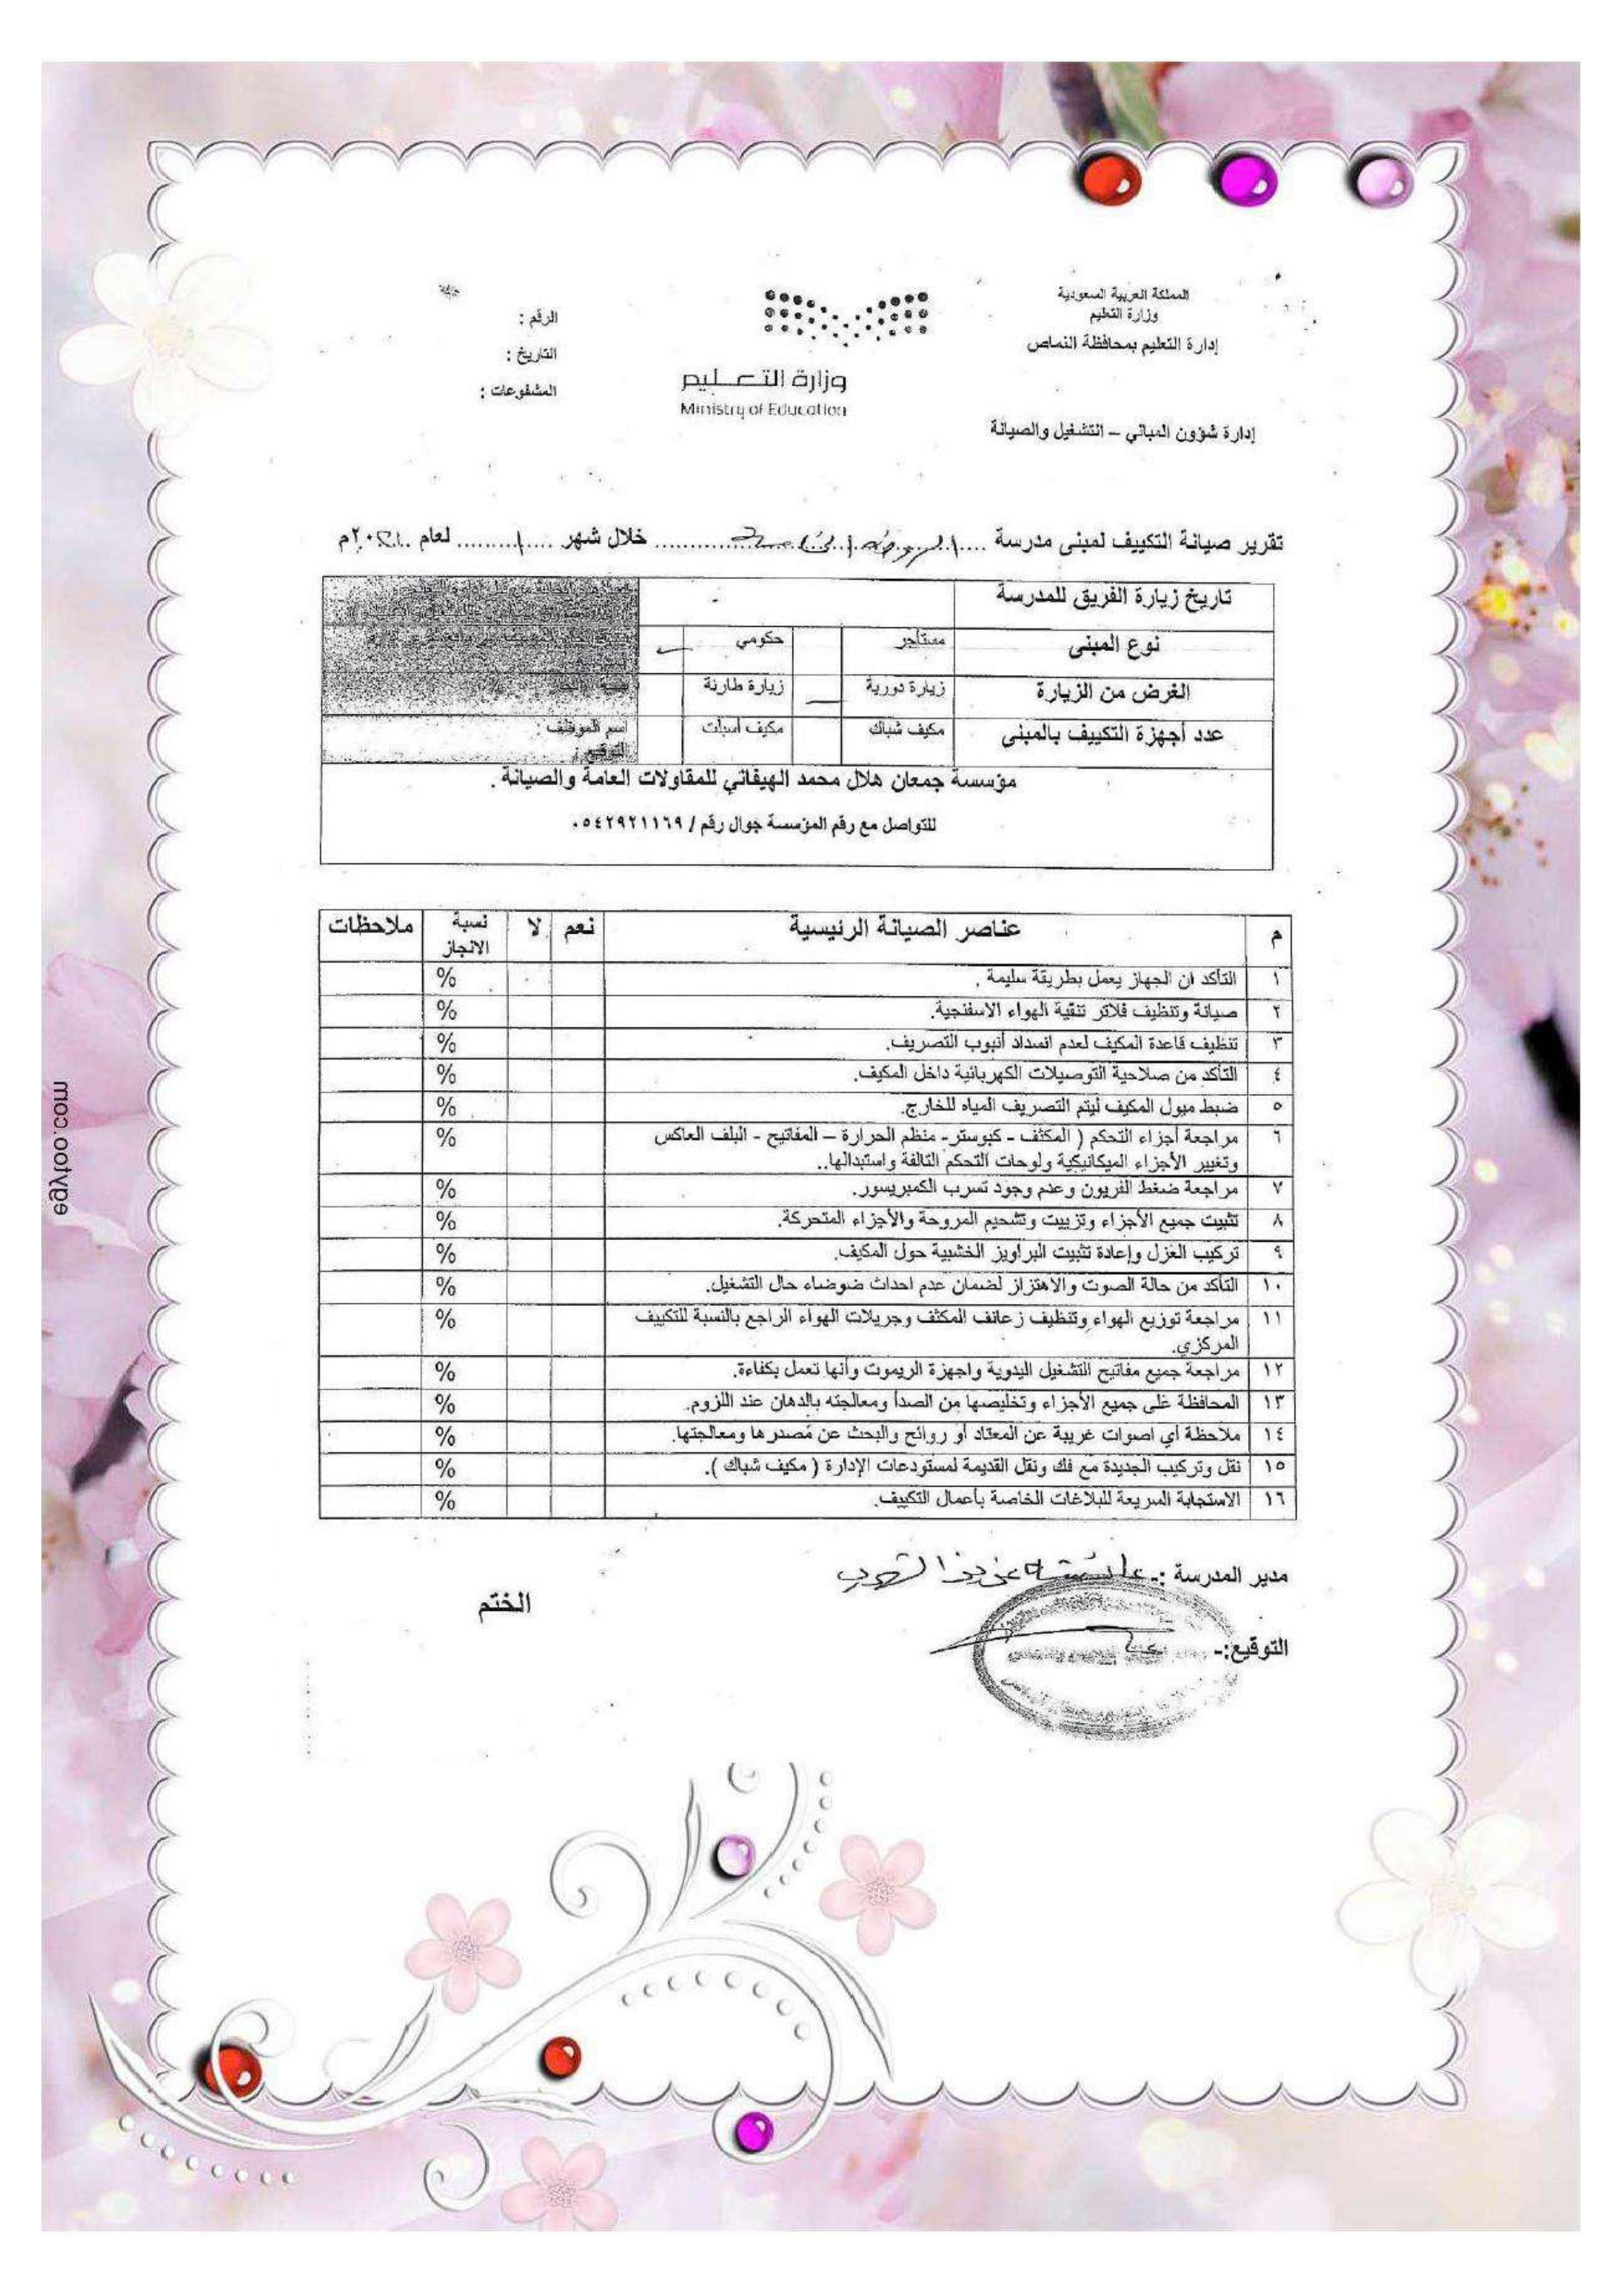 المملكة العربية السعودية
وزارة التعليم
إدارة التعليم بمحافظة النماص
إدارة شؤون المباني – التشغيل والصيانة
وزارة التعليم
Ministry of Education
الرقم :
التاريخ :
المشفوعات :
تقرير صيانة التكييف لمبنى مدرسة خلال شهر لعام م
تاريخ زيارة الفريق للمدرسة
نوع المبنى مستأجر حكومي
الغرض من الزيارة زيارة دورية زيارة طارئة
عدد أجهزة التكييف بالمبنى مكيف شباك مكيف اسبلت اسم الموظف :
التوقيع :
مؤسسة جمعان هلال محمد الهيفاني للمقاولات العامة والصيانة .
للتواصل مع رقم المؤسسة جوال رقم / ٠٥٤٢٩٢١١٦٩
م عناصر الصيانة الرئيسية نعم لا نسبة الانجاز ملاحظات
١ التأكد ان الجهاز يعمل بطريقة سليمة . %
٢ صيانة وتنظيف فلاتر تنقية الهواء الاسفنجية. %
٣ تنظيف قاعدة المكيف لعدم انسداد أنبوب التصريف. %
٤ التأكد من صلاحية التوصيلات الكهربائية داخل المكيف. %
٥ ضبط ميول المكيف ليتم التصريف المياه للخارج. %
٦ مراجعة أجزاء التحكم ( المكثف - كبوستر- منظم الحرارة – المفاتيح - البلف العاكس %
وتغيير الأجزاء الميكانيكية ولوحات التحكم التالفة واستبدالها..
٧ مراجعة ضغط الفريون وعدم وجود تسرب الكمبريسور. %
٨ تثبيت جميع الأجزاء وتزييت وتشحيم المروحة والأجزاء المتحركة. %
٩ تركيب العزل وإعادة تثبيت البراويز الخشبية حول المكايف. %
١٠ التأكد من حالة الصوت والاهتزاز لضمان عدم احداث ضوضاء حال التشغيل. %
١١ مراجعة توزيع الهواء وتنظيف زعانف المكثف وجريلات الهواء الراجع بالنسبة للتكييف %
المركزي.
١٢ مراجعة جميع مفاتيح التشغيل اليدوية واجهزة الريموت وأنها تعمل بكفاءة. %
١٣ المحافظة على جميع الأجزاء وتخليصها من الصدأ ومعالجته بالدهان عند اللزوم. %
١٤ ملاحظة أي اصوات غريبة عن المعتاد أو روائح والبحث عن مصدرها ومعالجتها. %
١٥ نقل وتركيب الجديدة مع فك ونقل القديمة لمستودعات الإدارة ( مكيف شباك ). %
١٦ الاستجابة السريعة للبلاغات الخاصة بأعمال التكييف. %
مدير المدرسة :-
التوقيع:-
الختم
egytoo.com